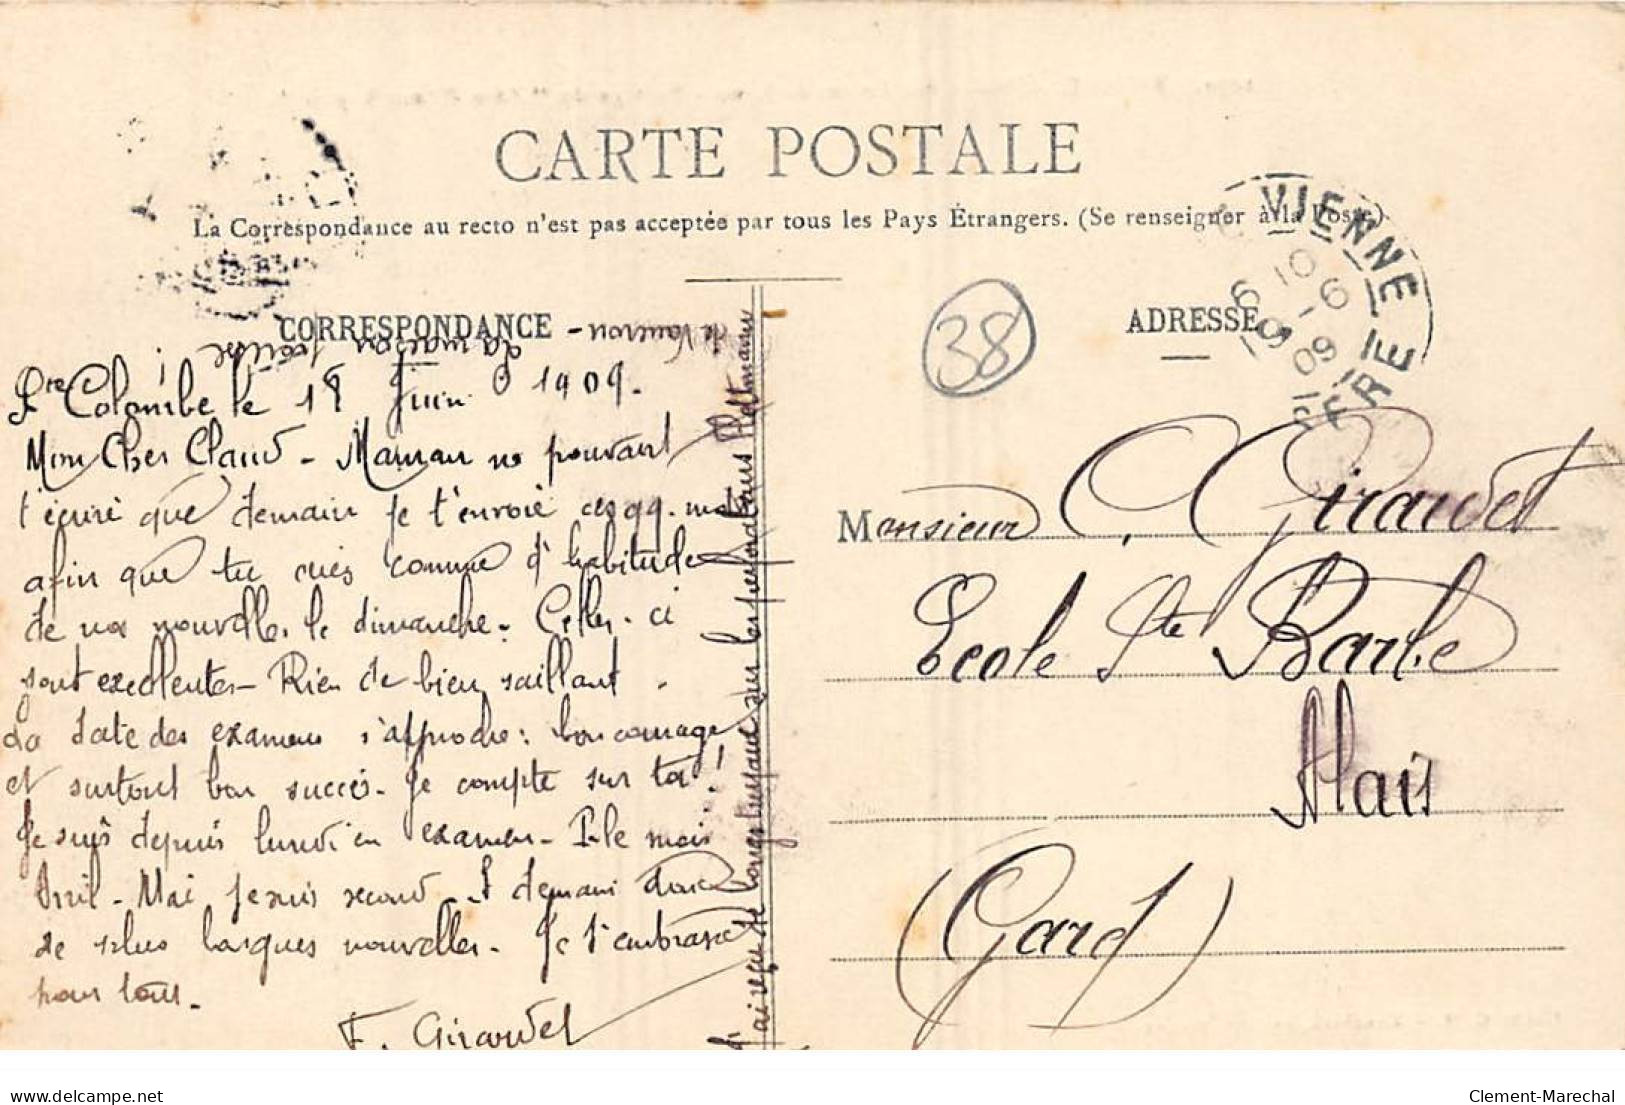 CARTE POSTALE
La Correspondance au recto n'est pas acceptée par tous les Pays Étrangers. (Se renseigner à la Poste)
CORRESPONDANCE
Ste Colombe le 18 Juin 1909.
Mon Cher Claud - Maman ne pouvant
t'écrire que demain je t'envoie ces qq. mots
afin que tu aies comme d'habitude
de nos nouvelles le dimanche. Celles-ci
sont excellentes - Rien de bien saillant.
La date des examens s'approche: bon courage
et surtout bon succès - Je compte sur toi!
Je suis depuis lundi en examen - P. le mois
Avril - Mai je suis second - A demain donc
de plus longues nouvelles - Je t'embrasse
pour tous -
F. Giraudet
J'ai reçu de longs travaux sur les fondations
la maison
ADRESSE
38
VIENNE
ISERE
19-6
09
Monsieur C. Giraudet
Ecole Ste Barbe
Alais
(Gard)
delcampe.net
Clement-Marechal